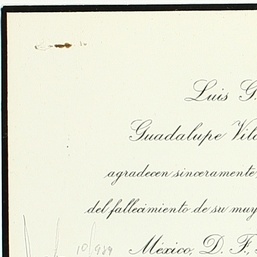 Luis G.
Guadalupe Vil
agradecen sinceramente
del fallecimiento de su muy
México, D. F.,
10/929